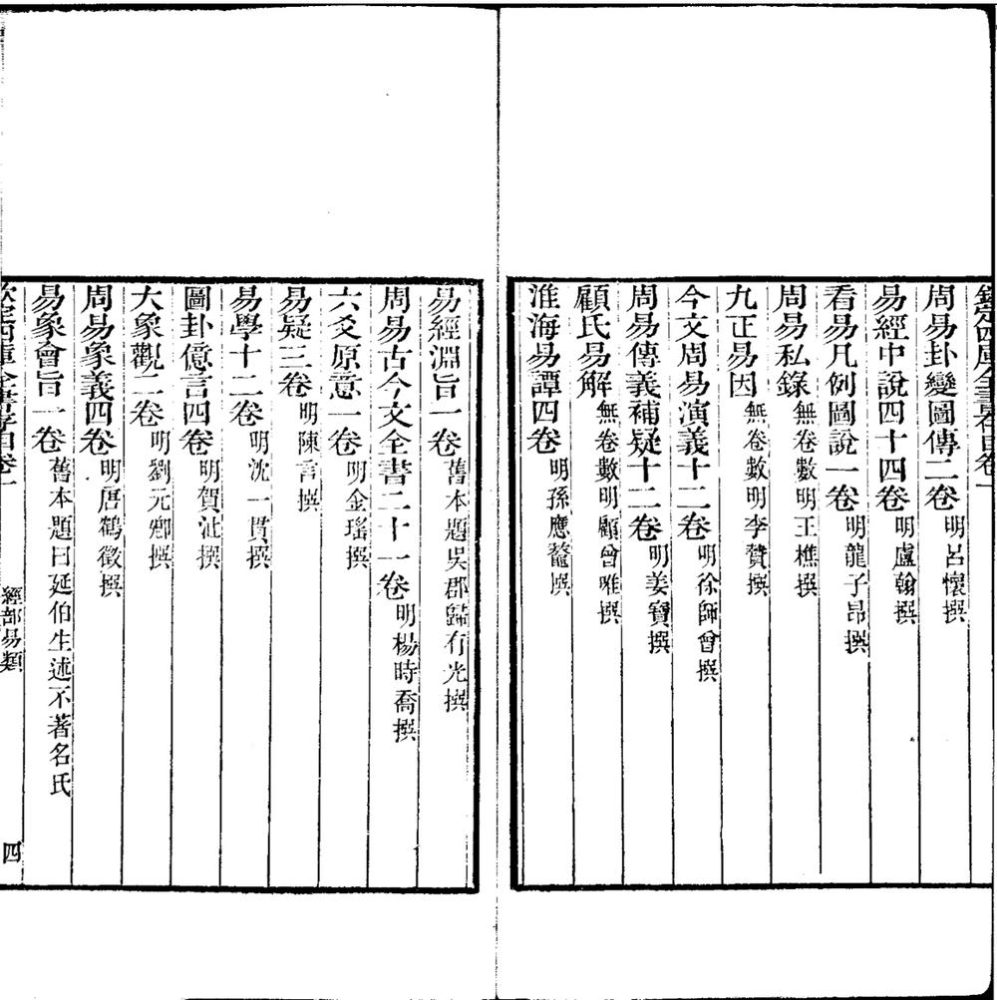 周易卦變圖傳二卷明呂懷撰
易經中說四十四卷明盧翰撰
看易凡例圖說一卷明龍子昂撰
周易私錄無卷數明王樵撰
九正易因無卷數明李贄撰
今文周易演義十二卷明徐師曾撰
周易傳義補疑十二卷明姜寶撰
顧氏易解無卷數明顧曾唯撰
淮海易譚四卷明孫應鼇撰
易經淵旨一卷舊本題吳郡歸有光撰
周易古今文全書二十一卷明楊時喬撰
六爻原意一卷明金瑤撰
易疑三卷明陳言撰
易學十二卷明沈一貫撰
圖卦億言四卷明賀沚撰
大象觀二卷明劉元卿撰
周易象義四卷明唐鶴徵撰
易象會旨一卷舊本題曰延伯生述不著名氏
經部易類 四